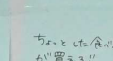 ちょっとした食べ
が買える